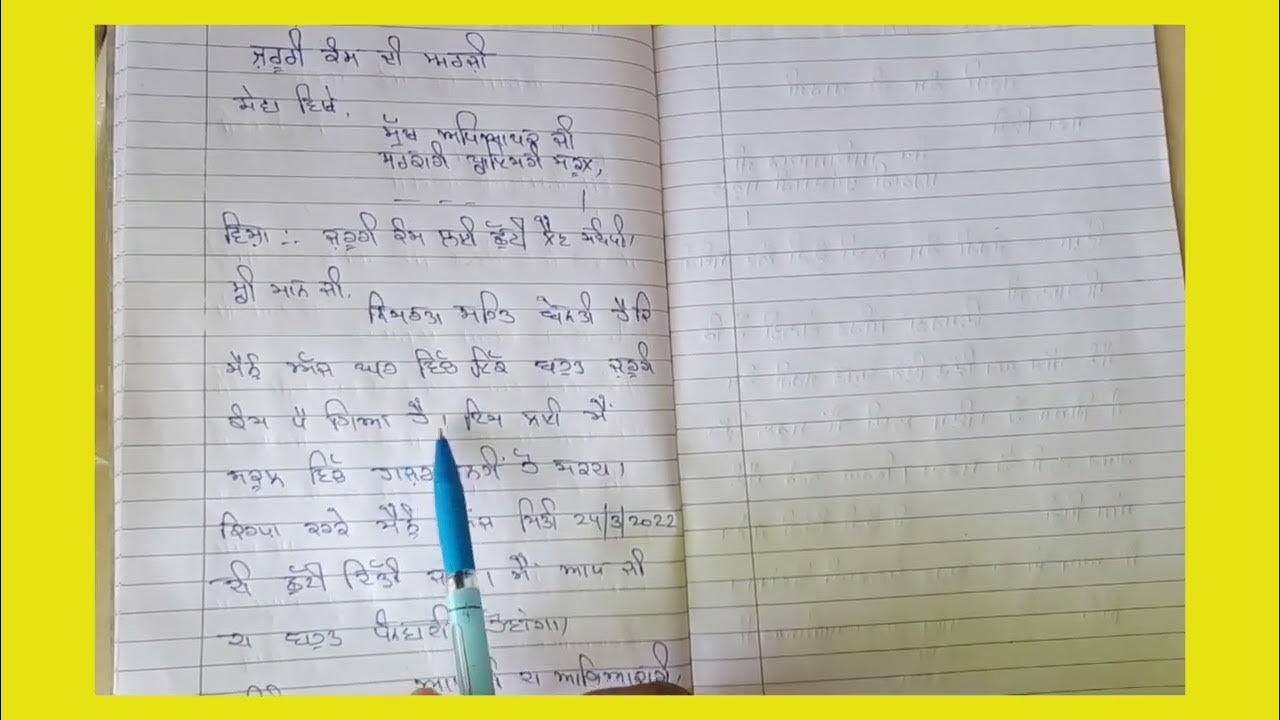 ਜ਼ਰੂਰੀ ਕੰਮ ਦੀ ਅਰਜ਼ੀ
ਸੇਵਾ ਵਿਖੇ,
ਮੁੱਖ ਅਧਿਆਪਕ ਜੀ
ਸਰਕਾਰੀ ਪ੍ਰਾਇਮਰੀ ਸਕੂਲ,
— — — ।
ਵਿਸ਼ਾ :- ਜ਼ਰੂਰੀ ਕੰਮ ਲਈ ਛੁੱਟੀ ਲੈਣ ਸੰਬੰਧੀ।
ਸ੍ਰੀ ਮਾਨ ਜੀ,
ਨਿਮਰਤਾ ਸਹਿਤ ਬੇਨਤੀ ਹੈ ਕਿ
ਮੈਨੂੰ ਅੱਜ ਘਰ ਵਿੱਚ ਇੱਕ ਬਹੁਤ ਜ਼ਰੂਰੀ
ਕੰਮ ਪੈ ਗਿਆ ਹੈ। ਇਸ ਲਈ ਮੈਂ
ਸਕੂਲ ਵਿੱਚ ਨਹੀਂ ਹੋ ਸਕਦਾ।
ਕਿਰਪਾ ਕਰਕੇ ਮੈਨੂੰ ਮਿਤੀ 24/3/2022
ਦੀ ਛੁੱਟੀ ਦਿੱਤੀ । ਮੈਂ ਆਪ ਜੀ
ਦਾ ਬਹੁਤ ਧੰਨਵਾਦੀ ਹੋਵਾਂਗਾ।
ਦਾ ਆਗਿਆਕਾਰੀ,